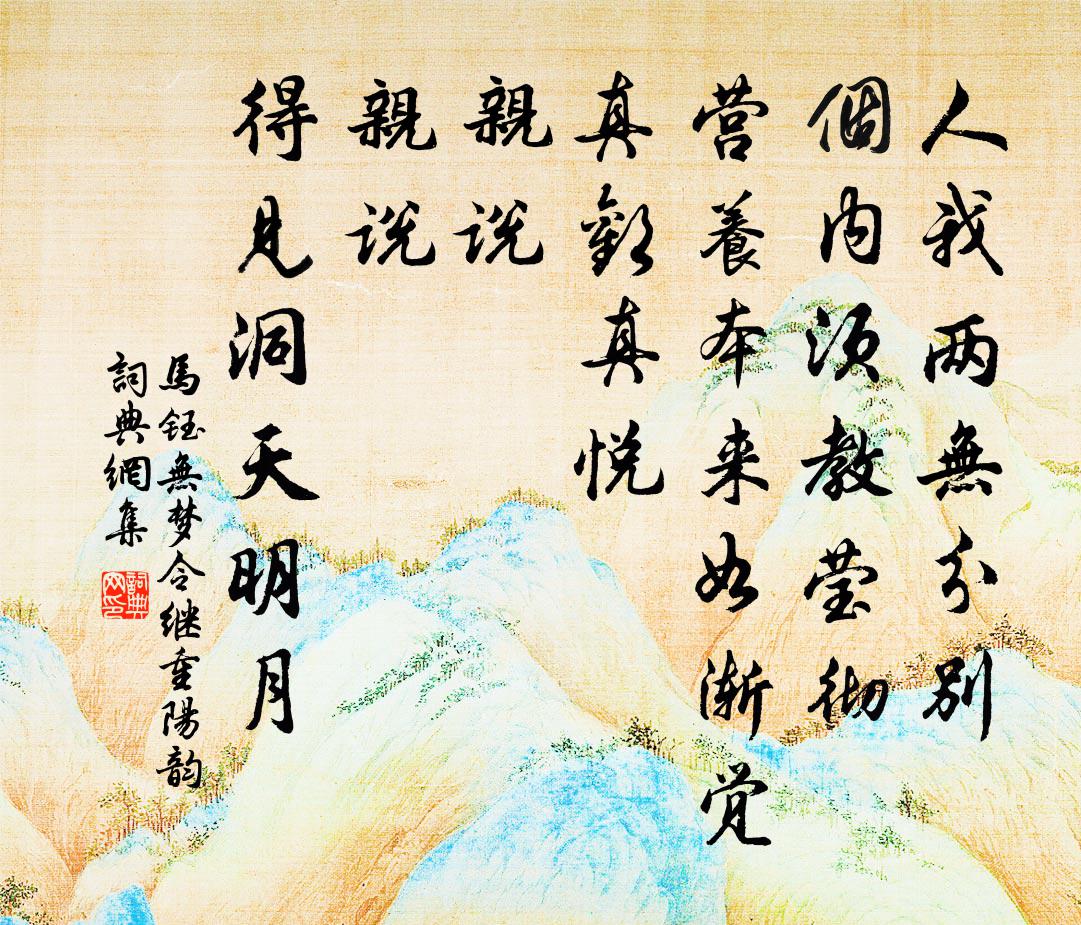 人我两無分别
個内须教莹彻
营養本来如渐觉
真歡真悦
親说
親说
得见洞天明月
馬钰無梦令继重陽韵
詞典網集
詞典网印